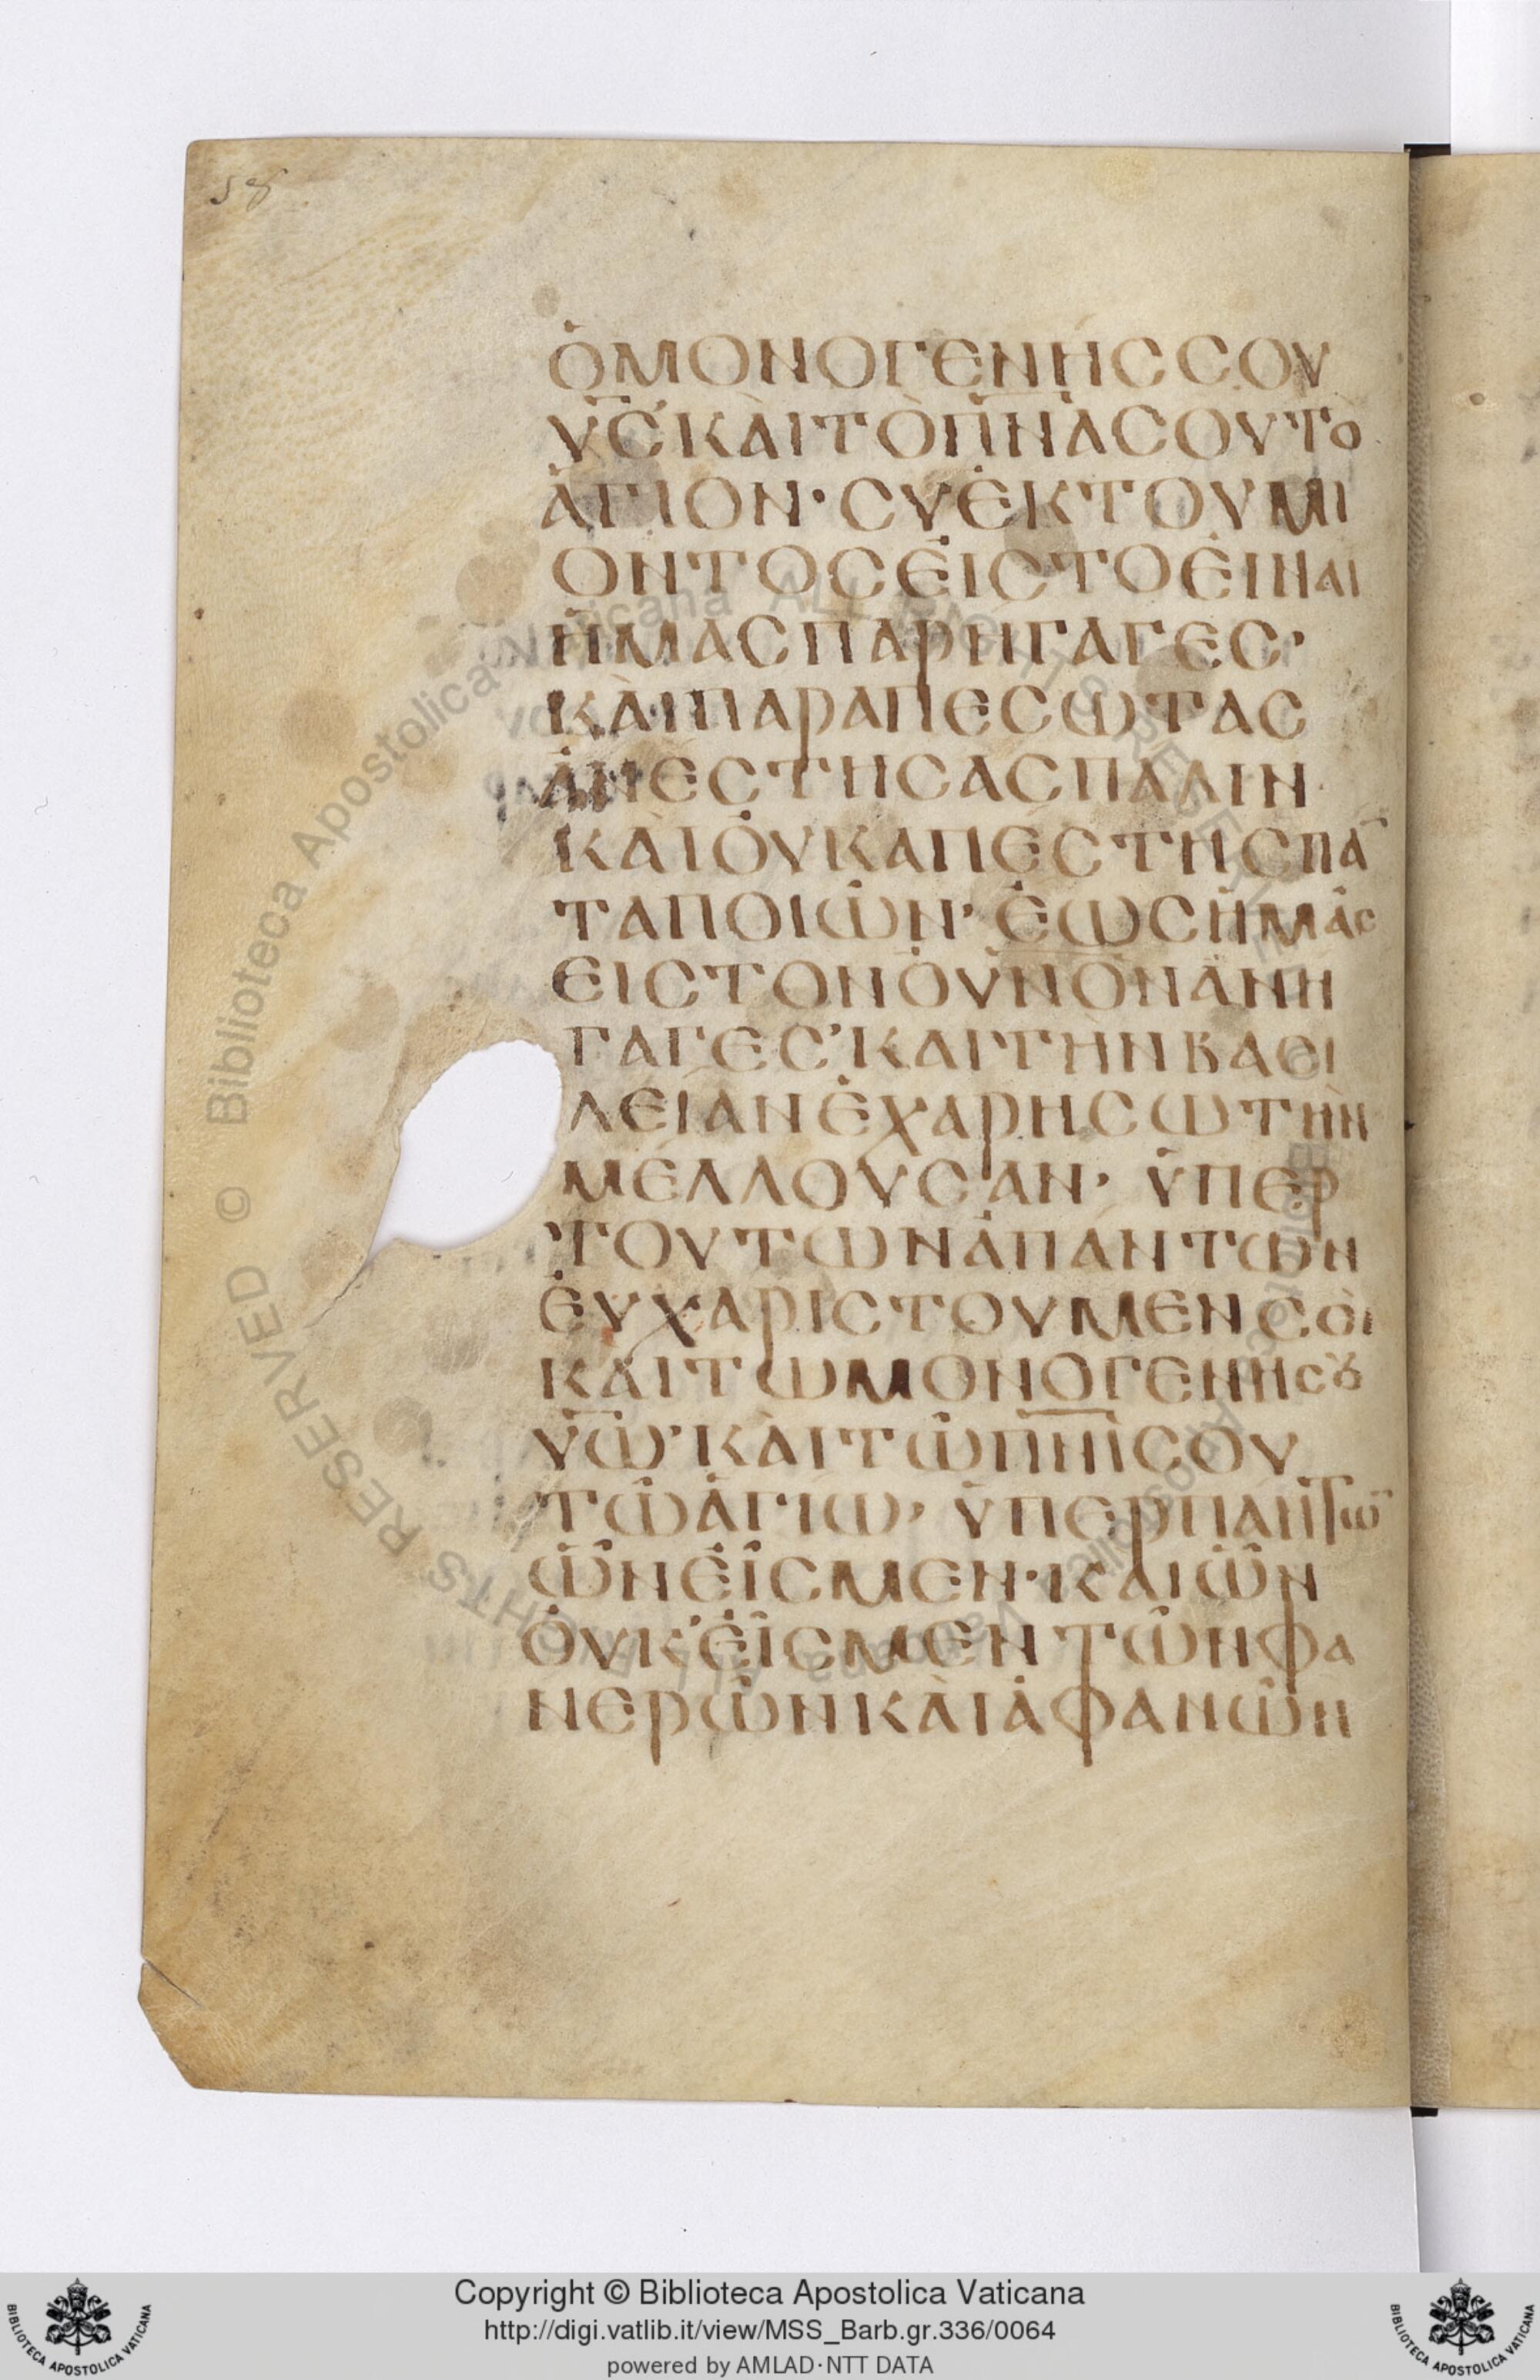 58
ὉΜΟΝΟΓΕΝΗϹϹΟΥ
Υ̅Ϲ̅ ΚΑῚΤῸΠ̅Ν̅Α̅ϹΟΥΤΟ
ἍΓΙΟΝ·ϹΥἘΚΤΟΥΜΙ
ΟΝΤΟϹἘΙϹΤΟἘΙΝΑΙ
ἩΜΑϹΠΑΡΗΓΑΓΕϹ·
ΚΑῚΠΑΡΑΠΕϹΩΤΑϹ
ἈΝΕϹΤΗϹΑϹΠΑΛΙΝ
ΚΑῚΟΥ̓ΚΑΠΕϹΤΗϹΠΑ̅
ΤΑΠΟΙΩ͂Ν· ἝΩϹἩΜΑ͂Ϲ
ΕΙϹΤΟΝΟΥ̅Ν̅Ο̅Ν̅ΑΝΗ
ΓΑΓΕϹ’ΚΑΙΤΗΝΒΑΘΙ
ΛΕΊΑΝἘΧΑΡΗϹΩΤῊΝ
ΜΈΛΛΟΥϹΑΝ· ὙΠΕΡ
ΤΟΥΤΩΝἉΠΆΝΤΩΝ
ἘΥΧΑΡΙϹΤΟΥΜΕΝϹΟῚ
ΚΑΙΤΩΜΟΝΟΓΕΝΗϹȢ
Υ̅Ω̅’ΚΑῚΤΩ͂Π̅Ν̅Ι̅ϹΟΥ
ΤΩ͂ἉΓΊΩ· ὙΠΕΡΠΑΝΤΩ̅
ὯΝἘΙϹΜΕΝ·ΚΑΙὯΝ
ὈΥΚ’ἘΙϹΜΕΝΤΩ͂ΝΦΑ
ΝΕΡΩ͂ΝΚΑῚἈΦΑΝΩ͂Ν
Copyright © Biblioteca Apostolica Vaticana
http://digi.vatlib.it/view/MSS_Barb.gr.336/0064
powered by AMLAD·NTT DATA
BIBLIOTECA APOSTOLICA VATICANA
BIBLIOTECA APOSTOLICA VATICANA